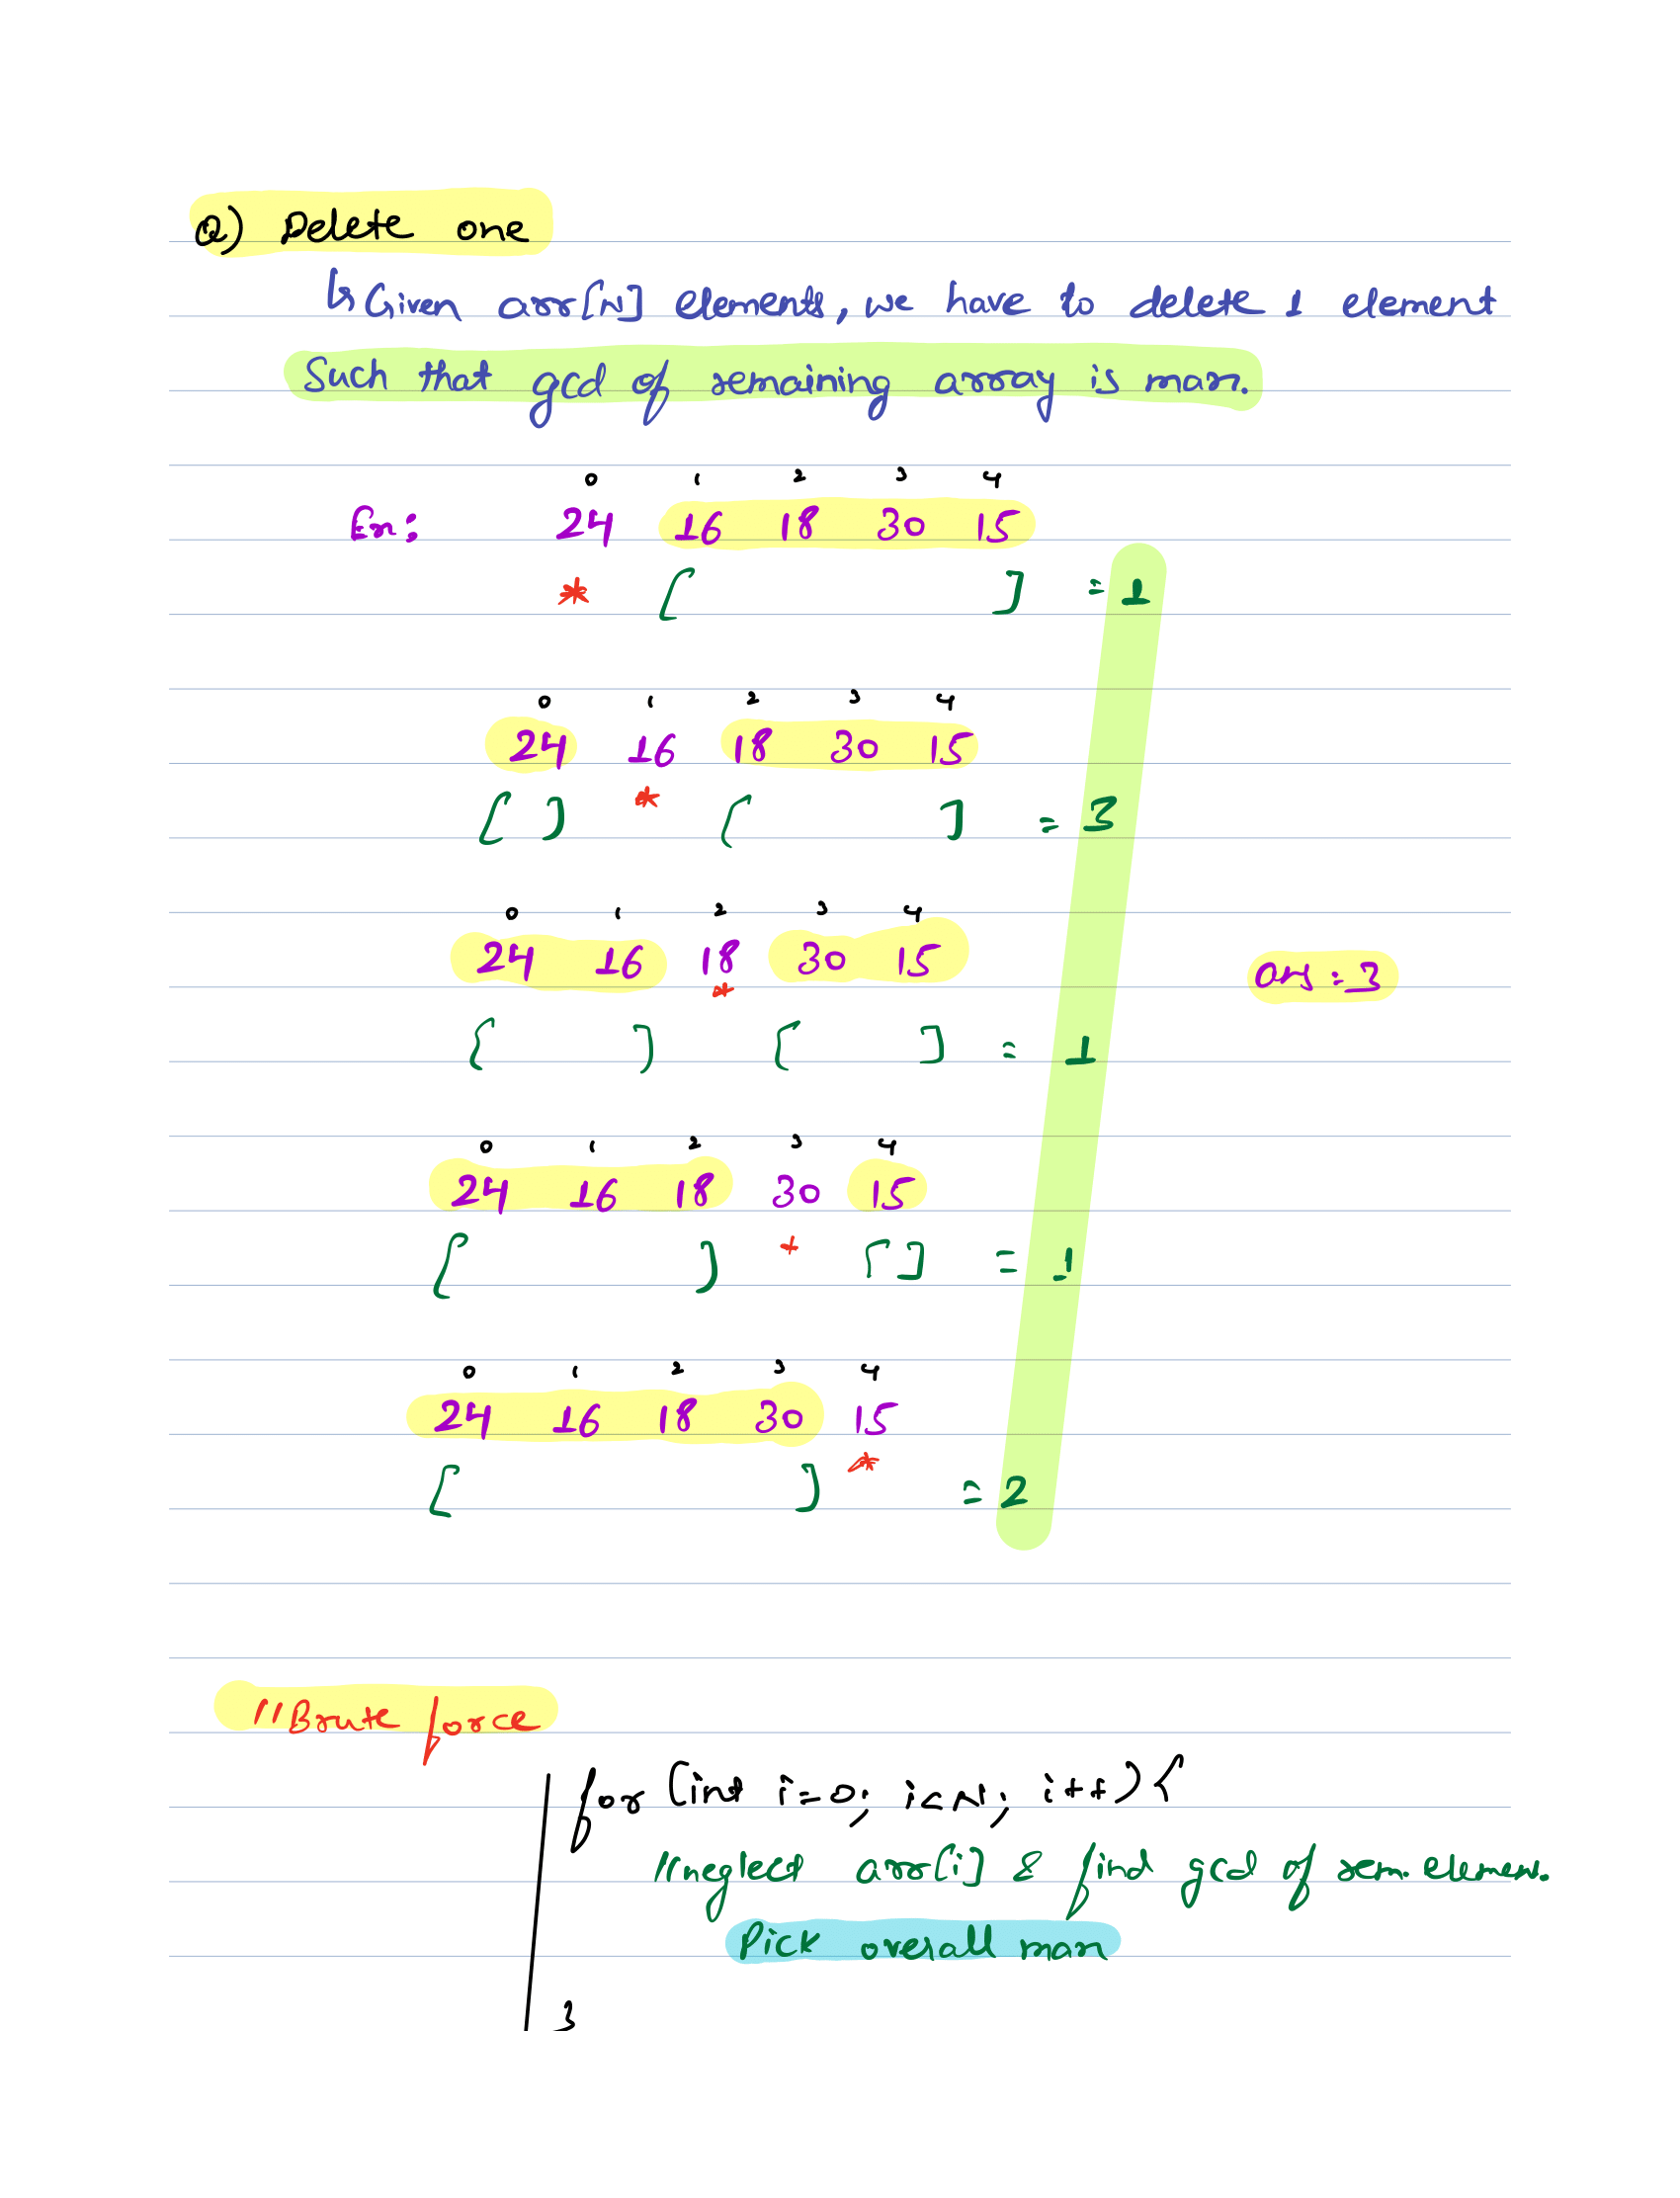 Q) Delete one
↳ Given arr[N] elements, we have to delete 1 element
Such that gcd of remaining array is max.
0 1 2 3 4
Ex: 24 16 18 30 15
* [ ] = 1
0 1 2 3 4
24 16 18 30 15
[ ] * [ ] = 3
0 1 2 3 4
24 16 18 30 15
*
ans = 3
[ ] [ ] = 1
0 1 2 3 4
24 16 18 30 15
[ ] * [ ] = 1
0 1 2 3 4
24 16 18 30 15
[ ] * = 2
// Brute force
for (int i=0; i<N; i++) {
// neglect arr[i] & find gcd of rem. element.
Pick overall max
}